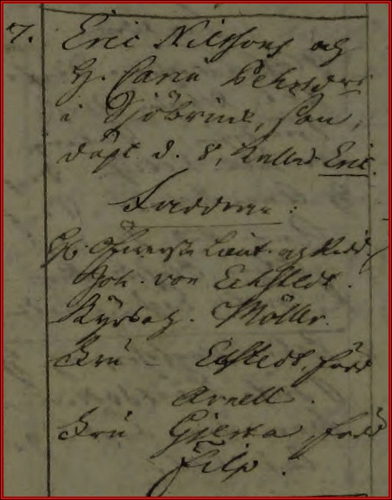 7. Eric Nilssons og
H. Carin Pehrsdrs
i Sjöbrink, son,
döpt d. 8, kallad Eric.
Faddrar:
H. Öfverste Lieut. og Ridd
Joh. von Eckstedt.
Kyrkoh. Möller.
Fru - Eckstedt, född
Arnell.
Fru Gjerta född
Filp.